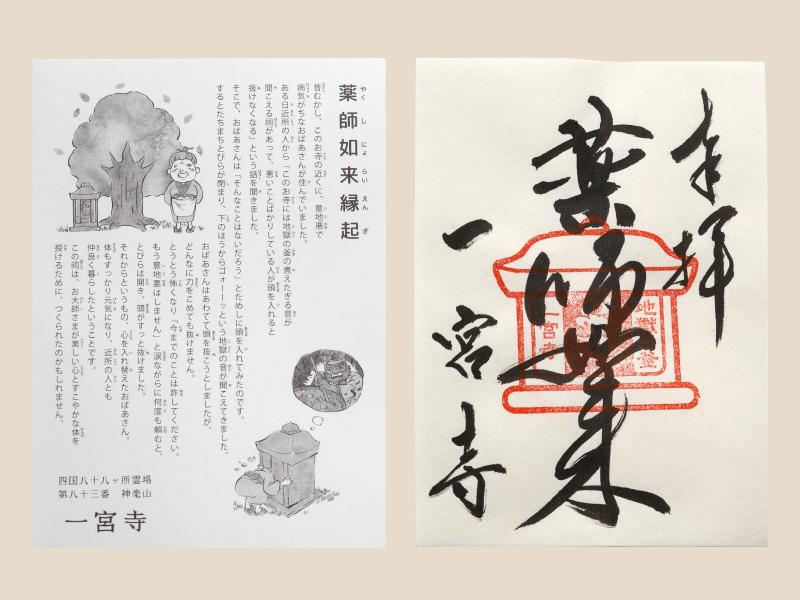 薬師如来縁起
昔むかし、このお寺の近くに、意地悪で
病気がちなおばあさんが住んでいました。
ある日近所の人から「このお寺には地獄の釜の煮えたぎる音が
聞こえる祠があって、悪いことばかりしている人が頭を入れると
抜けなくなる」という話を聞きました。
そこで、おばあさんは「そんなことはないだろう」とためしに頭を入れてみたのです。
するとたちまちとびらが閉まり、下のほうからゴォーーッという地獄の音が聞こえてきました。
おばあさんはあわてて頭を抜こうとしましたが、
どんなに力をこめても抜けません。
とうとう怖くなり「今までのことは許してください。
もう意地悪はしません」と涙ながらに何度も頼むと、
とびらは開き、頭がすっと抜けました。
それからというもの、心を入れ替えたおばあさん。
体もすっかり元気になり、近所の人とも
仲良く暮らしたということです。
この祠は、お大師さまが美しい心とすこやかな体を
授けるために、つくられたのかもしれません。
四国八十八ヶ所霊場
第八十三番 神毫山
一宮寺
奉拝
薬師如来
一宮寺
地獄の釜
一宮寺